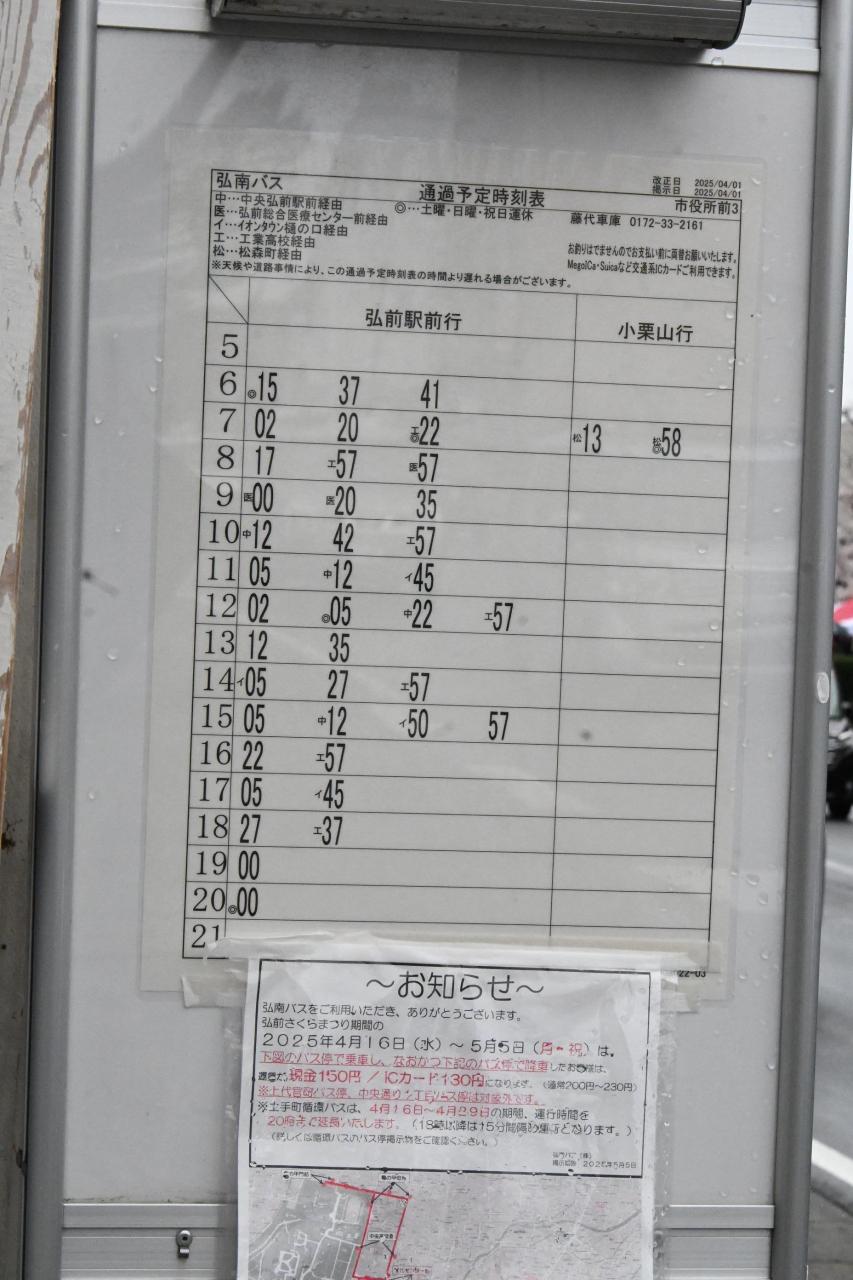 弘南バス
通過予定時刻表
改正日 2025/04/01
掲示日 2025/04/01
中…中央弘前駅前経由
◎…土曜・日曜・祝日運休
市役所前3
医…弘前総合医療センター前経由
藤代車庫 0172-33-2161
イ…イオンタウン樋の口経由
工…工業高校経由
お釣りはでませんのでお支払い前に両替お願いいたします。
松…松森町経由
MegoICa・Suicaなど交通系ICカードご利用できます。
※天候や道路事情により、この通過予定時刻表の時間より遅れる場合がございます。
弘前駅前行 小栗山行
5
6 ◎15 37 41
7 02 20 工◎22 松13 松◎58
8 17 工57 医57
9 医00 医20 35
10 中12 42 工57
11 05 中12 イ45
12 02 ◎05 中22 工57
13 12 35
14 イ05 27 工57
15 05 中12 イ50 57
16 22 工57
17 05 イ45
18 27 工37
19 00
20 ◎00
21
22-03
～お知らせ～
弘南バスをご利用いただき、ありがとうございます。
弘前さくらまつり期間の
2025年4月16日（水）～5月5日（月・祝）は、
下図のバス停で乗車し、なおかつ下記のバス停で降車したお客様は、
現金150円／ICカード130円になります。（通常200円～230円）
※上代官町バス停、中央通り二丁目バス停は対象外です。
※土手町循環バスは、4月16日～4月29日の期間、運行時間を
20時まで延長いたします。（18時以降は15分間隔の運行となります。）
（詳しくは循環バスのバス停掲示物をご確認ください。）
弘南バス（株）
2025年5月5日